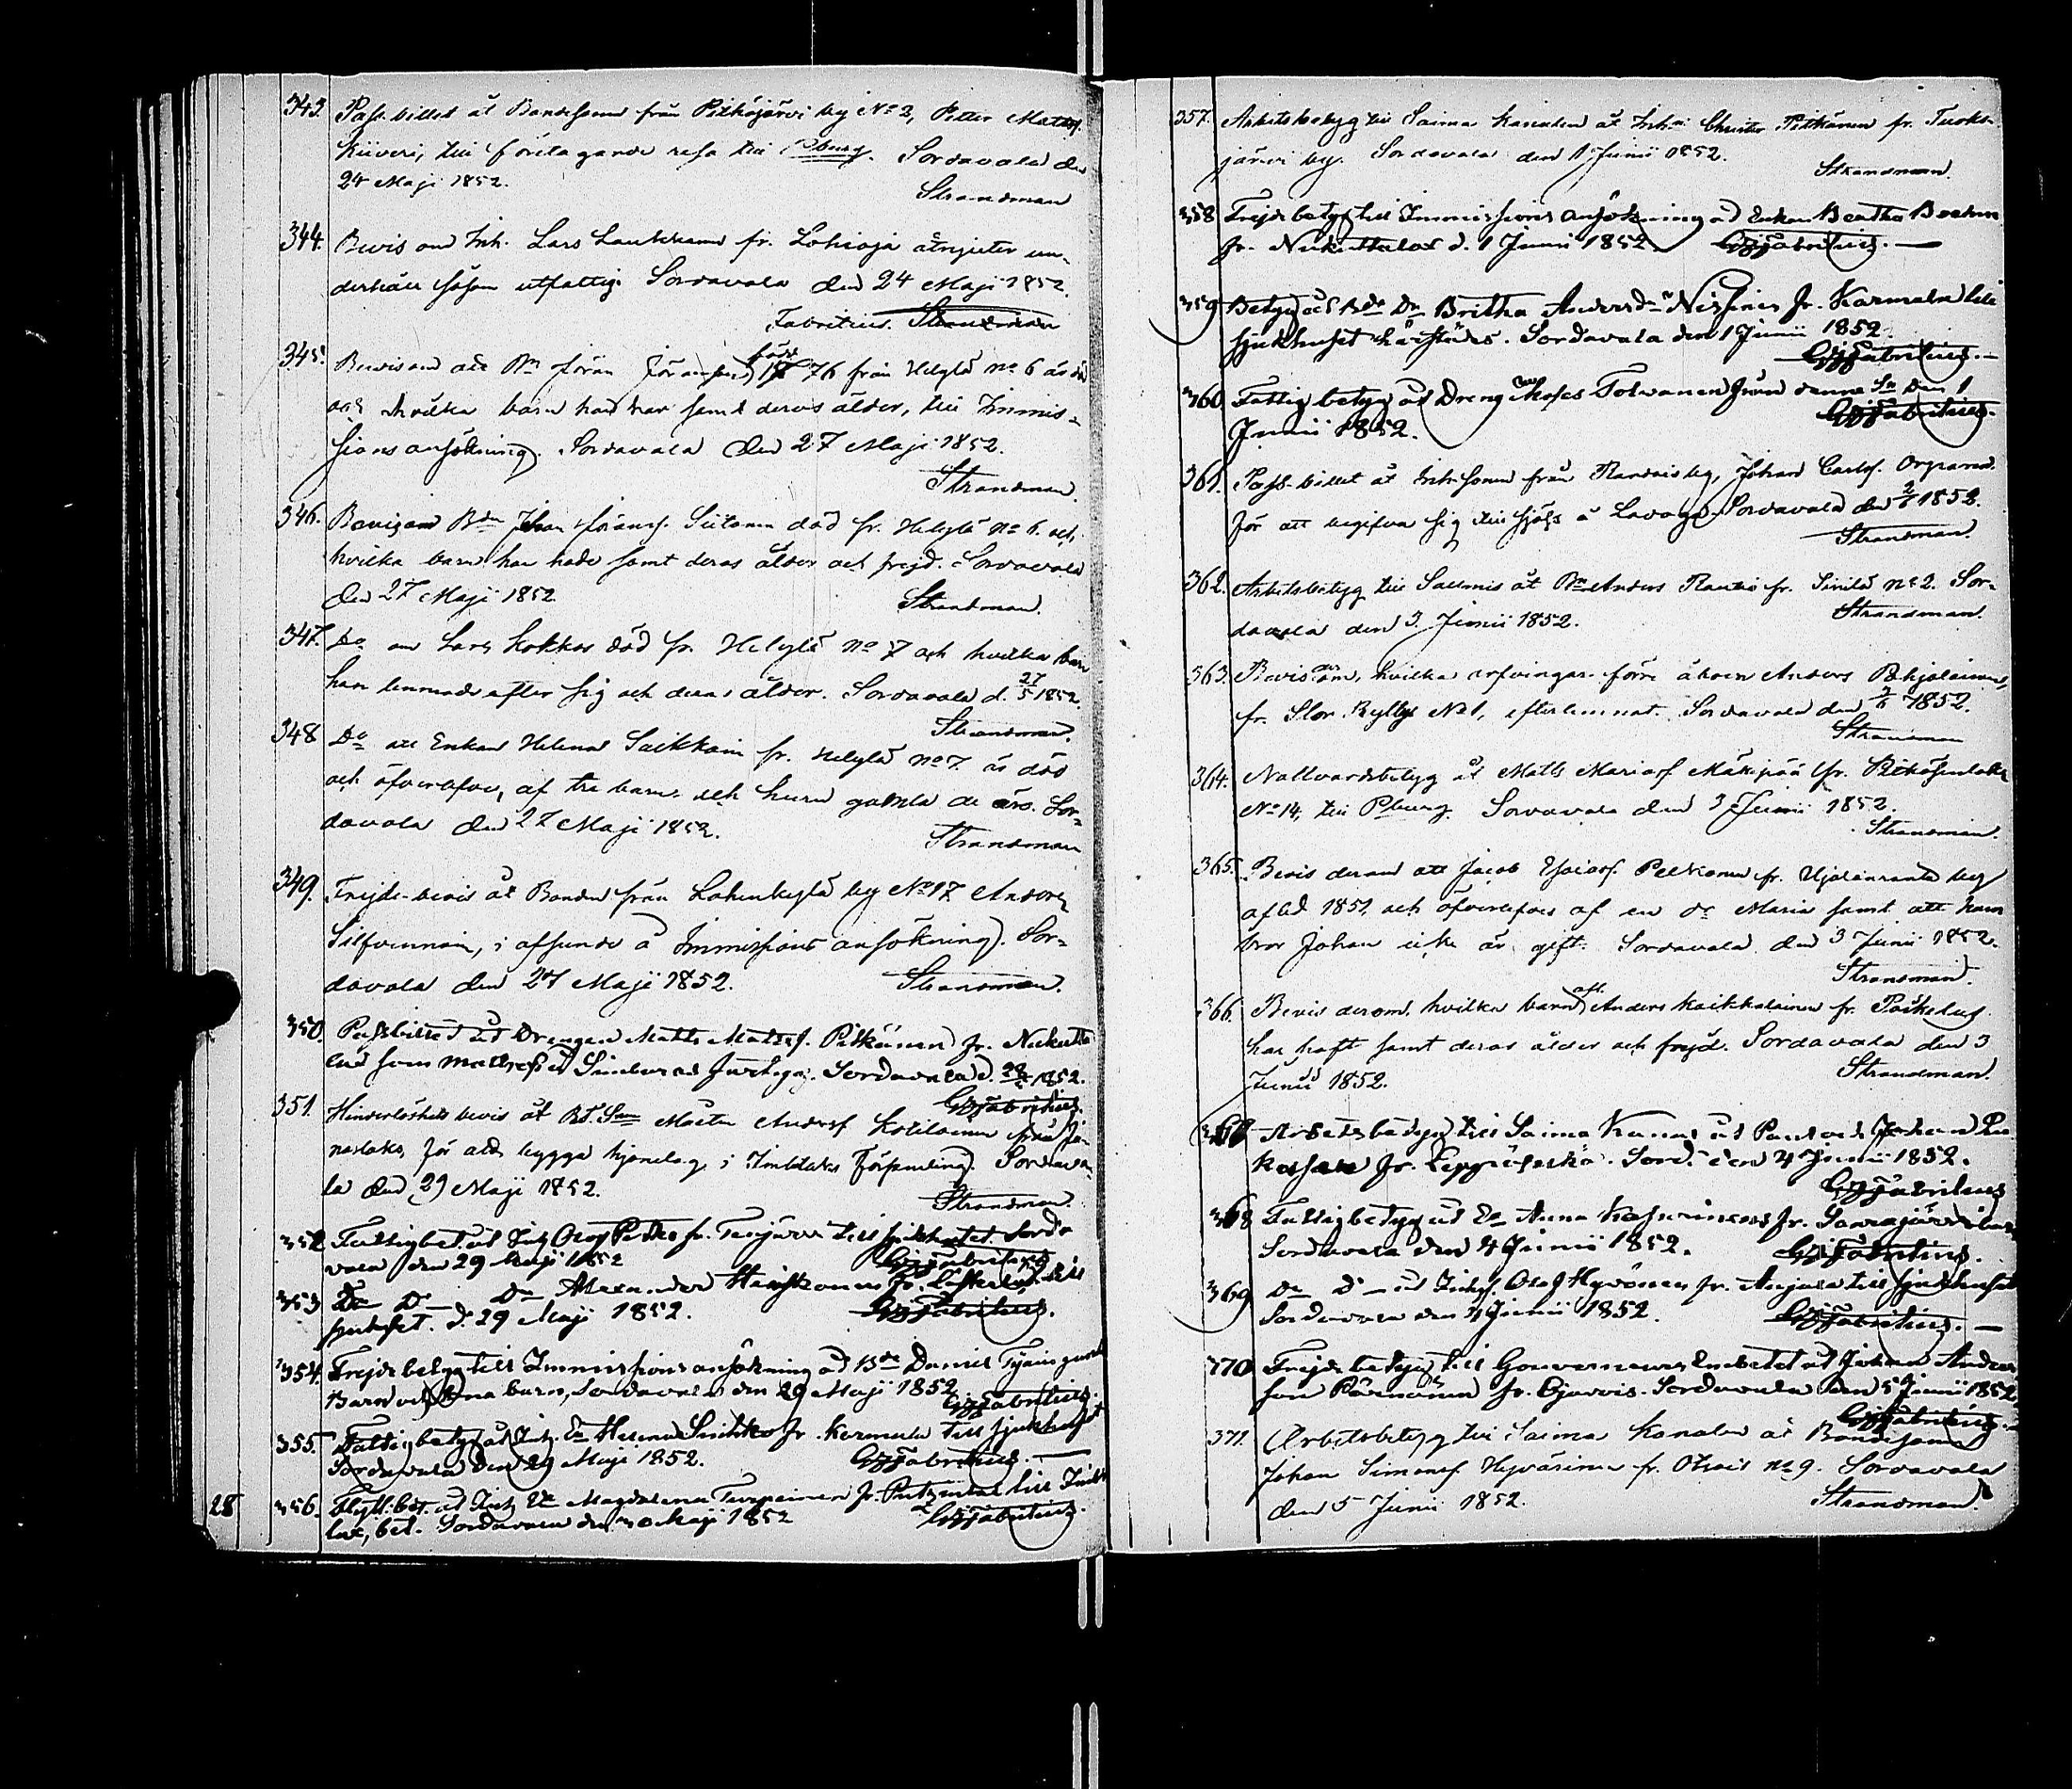 343. Pass-billet åt Bondesonen från Pitkäjärvi by No 2, Petter Mattsf.
Kiiveri, till företagande resa till Pburg. Sordavala den
24 Maji 1852. Strandman
344. Bevis om Inh. Lars Laukkanen fr. Lohioja åtnjuter un-
derhåll såsom utfattig. Sordavala den 24 Maji 1852.
Fabritius. Strandman
345. Bevis om att Bn Jöran Göransson född 1776 från Helylä no 6 är död
och hvilka barn han har samt deras ålder, till Immis-
sions ansökning. Sordavala den 27 Maji 1852.
Strandman.
346. Bevis om Bdn Johan Göransf. Siitonen död fr. Helylä no 6. och
hvilka barn han hade samt deras ålder och frejd. Sordavala
den 27 Maji 1852. Strandman.
347. Do om Lars Kokkos död fr. Helylä No 7 och hvilka barn
han lemnade efter sig och deras ålder. Sordavala d. 27/5 1852.
Strandman.
348 Do att Enkan Helena Saikkoin fr. Helylä no 7. är död
och öfverlefves, af tre barn och huru gamla de äro. Sor-
davala den 27 Maji 1852. Strandman
349. Frejde-bevis åt Bonden från Lahenkylä by No 17 Anders
Silfvennoin, i afseende å Immissions ansökning. Sor-
davala den 27 Maji 1852. Strandman.
350. Passbilled åt Drengen Matts Mattsf. Pitkänen fr. Nukutta
lax som
Sordavala d. 28/5 1852.
GJFabritius.
351. Hinderlöshets bevis åt Bd. Sn Mårten Andersf Kotilainen från Ja-
naslaks, för att bygga hjonelag i Imbilaks Församling. Sordava-
la den 29 Maji 1852. Strandman.
352 Fattigbet. åt Inh. Olof Petko fr. till sjukhuset. Sorda
vala den 29 Maji 1852 GJFabritius
353 Do Do Do Alexander fr. till
sjukhset. d. 29 Maji 1852. GJFabritius.
354. Frejde betyg till Immissions ansökning åd Bde Daniel
Barn och barn, Sordavala den 29 Maji 1852
GJFabritius.
355. Fattigbetyg åt Inh. Helena fr. Karmala till sjukhuset
Sordavala den 29 Maji 1852. GJFabritius.
28 356. Flytt. bet. åt Inh. Magdalena Turpeinen fr. till Imbi
lax, bet. Sordavala den 30 Maji 1852 GJFabritius.
357. Arbetsbetyg till Saima Kanalen åt Christer Pitkänen fr. Tuoks-
järvi by. Sordavala den 1 Junii 1852. Strandman.
358 Frejde betyg till Immissions ansökning åd Enkan Beatha Boehm
fr. Nukuttalax d. 1 Junii 1852. GJFabritius.
359 Betyg åt Bde Dr Britha Andersdr fr. Karmala till
sjukhuset härstädes. Sordavala den 1 Junii 1852.
GJFabritius.
360 Fattig betyg åt Dreng Moses Tolwanen från denna Sn den 1
Junii 1852. GJFabritius.
361. Pass-billet åt Inh. sonen från Rantois by, Johan Carlsf.
för att begifva sig till sjöss å Ladoga. Sordavala den 2/6 1852.
Strandman.
362. Arbetsbetyg till Salmis åt Bn Anders Rautio fr. no 2. Sor-
davala den 3. Junii 1852. Strandman.
363. Bevis om, hvilka arfvingar förre åboen Anders
fr. Stor Rytty No 1, efterlemnat. Sordavala den 3/6 1852.
Strandman
364. Nattvardsbetyg åt Matts Mäkipää fr.
No 14, till Pburg. Sordavala den 3 Junii 1852.
Strandman.
365. Bevis derom att Jacob Esaiasf. Pelkonen fr. Hjelänranta by
afled 1851, och öfverlefves af en dr Maria samt att hans
bror Johan icke är gift. Sordavala den 3 Junii 1852.
Strandman.
366. Bevis derom, hvilka barn afl. Anders Kaikkolainen fr.
har haft samt deras ålder och frejd. Sordavala den 3
Junii 1852. Strandman.
367 Arbetsbetyg till Saima Kanal åt Paul och Johan
fr. Leppäselkä. Sord. den 4 Junii 1852.
GJFabritius
368 Fattigbetyg åt Anna fr.
Sordavala den 4 Junii 1852. GJFabritius.
369 Do Do åt Inhsf. Olof Hyvönen fr. Anjala till sjukhuset
Sordavala den 4 Junii 1852. GJFabritius.
370 Frejde betyg till Gouverneurs Embetet åt Johan Anders
son Pärnänen fr. Sordavala den 5 Junii 1852
GJFabritius.
371. Arbetsbetyg till Saima Kanalen åt Bondesonen
Johan Simonsf. Hyvärinen fr. Otsois no 9. Sordavala
den 5 Junii 1852. Strandman.